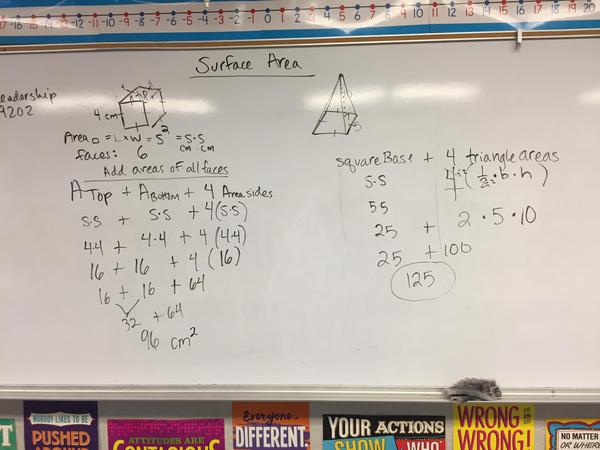 -17 -16 -15 -14 -13 -12 -11 -10 -9 -8 -7 -6 -5 -4 -3 -2 -1 0 1 2 3 4 5 6 7 8 9 10 11 12 13 14 15 16 17 18 19 20
Surface Area
eadership
9202
4 cm
Area □ = L×W = S² = S·S
cm · cm
faces: 6
Add areas of all faces
A Top + A Bottom + 4 Area sides
S·S + S·S + 4(S·S)
4·4 + 4·4 + 4(4·4)
16 + 16 + 4(16)
16 + 16 + 64
32 + 64
96 cm²
5
square Base + 4 triangle areas
S·S
(½ · b · h)
5·5
25 + 2 · 5 · 10
25 + 100
125
NOBODY LIKES TO BE
PUSHED
AROUND
ATTITUDES ARE
CONTAGIOUS
Everyone is
DIFFERENT.
YOUR ACTIONS
SHOW WHO
WRONG IS
WRONG!
NO MATTER
OR WHERE